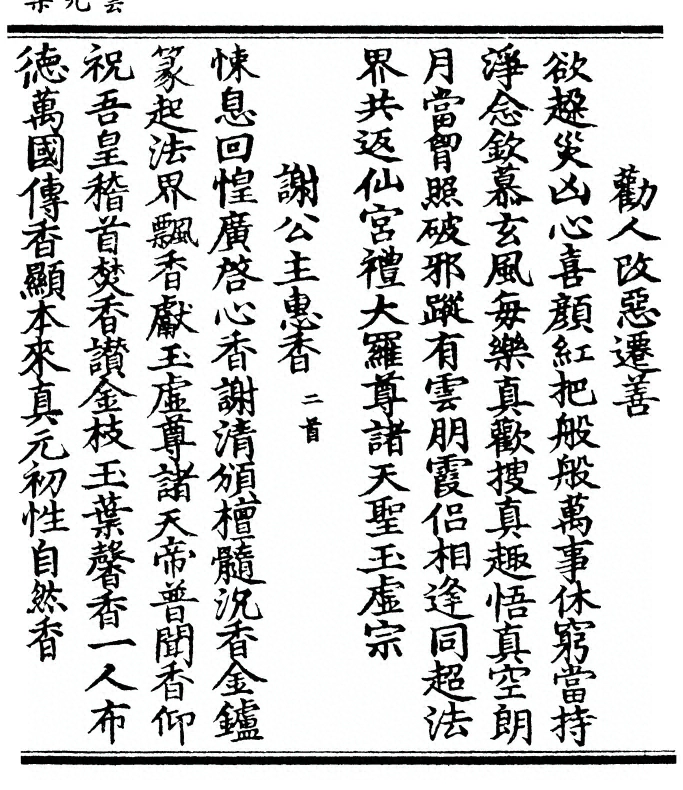 勸人改惡遷善
欲趂災凶心喜顔紅把般般萬事休窮當持
淨念欽慕玄風每樂真歡搜真趣悟真空朗
月當胷照破邪蹤有雲朋霞侣相逢同超法
界共返仙宮禮大羅尊諸天聖玉虛宗
謝公主惠香二首
悚息回惶廣啓心香謝清頒檀髓沉香金鑪
篆起法界飄香獻玉虛尊諸天帝普聞香仰
祝吾皇稽首焚香讃金枝玉葉馨香一人布
德萬國傳香顯本來真元初性自然香